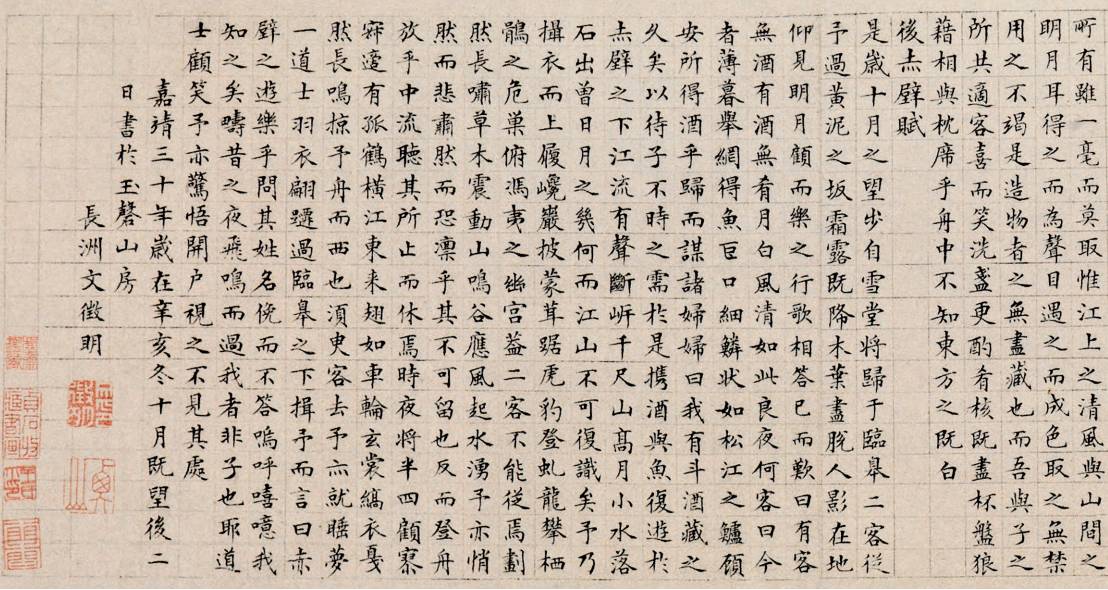 所有雖一毫而莫取惟江上之清風與山間之
明月耳得之而為聲目遇之而成色取之無禁
用之不竭是造物者之無盡藏也而吾與子之
所共適客喜而笑洗盞更酌肴核既盡杯盤狼
藉相與枕席乎舟中不知東方之既白
後赤壁賦
是歲十月之望步自雪堂將歸于臨皋二客從
予過黃泥之坂霜露既降木葉盡脫人影在地
仰見明月顧而樂之行歌相答已而歎曰有客
無酒有酒無肴月白風清如此良夜何客曰今
者薄暮舉網得魚巨口細鱗狀如松江之鱸顧
安所得酒乎歸而謀諸婦婦曰我有斗酒藏之
久矣以待子不時之需於是攜酒與魚復遊於
赤壁之下江流有聲斷岸千尺山高月小水落
石出曾日月之幾何而江山不可復識矣予乃
攝衣而上履巉巖披蒙茸踞虎豹登虬龍攀栖
鶻之危巢俯馮夷之幽宮葢二客不能從焉劃
然長嘯草木震動山鳴谷應風起水湧予亦悄
然而悲肅然而恐凜乎其不可留也反而登舟
放乎中流聽其所止而休焉時夜將半四顧寥
寂適有孤鶴橫江東来翅如車輪玄裳縞衣戛
然長鳴掠予舟而西也須臾客去予亦就睡夢
一道士羽衣翩躚過臨皋之下揖予而言曰赤
壁之遊樂乎問其姓名俛而不答嗚呼嘻噫我
知之矣疇昔之夜飛鳴而過我者非子也耶道
士顧笑予亦驚悟開戶視之不見其處
嘉靖三十年歲在辛亥冬十月既望後二
日書於玉磬山房
長洲文徵明